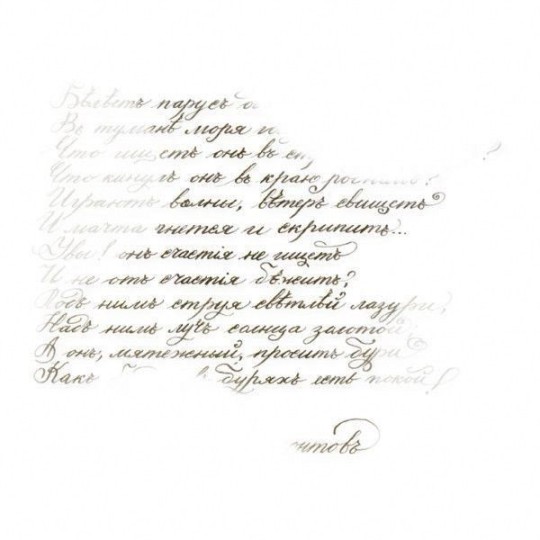 Бѣлѣетъ парусъ
Въ туманѣ моря
Что ищетъ онъ въ
Что кинулъ онъ въ краю
Играютъ волны, вѣтеръ свищетъ
И мачта гнется и скрипитъ...
Увы! онъ счастія не ищетъ
И не отъ счастія бѣжитъ?
Подъ нимъ струя свѣтлѣй лазури,
Надъ нимъ лучъ солнца золотой
А онъ, мятежный, проситъ бури
Какъ буряхъ есть покой!
нтовъ